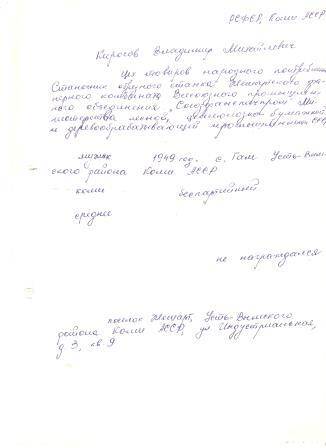 РСФСР, Коми АССР
Пирогов Владимир Михайлович
Цех товаров народного потребления
Станочник обрезного станка Жешартского фа-
нерного комбината Всесоюзного промышлен-
ного объединения "Союзфанспичпром" Ми-
нистерства лесной, целлюлозно бумажной
и деревообрабатывающей промышленности СССР
мужской 1949 год. с. Гам Усть-Вым-
ского района Коми АССР
коми беспартийный
среднее
не награждался
поселок Жешарт, Усть-Вымского
района Коми АССР, ул Индустриальная,
д 3, кв 9